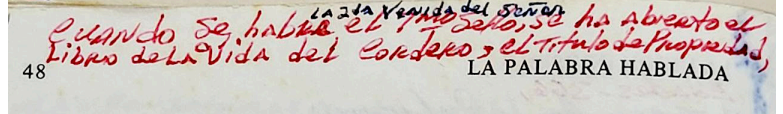 LA 2da Venida del Señor
Cuando se habla el 7mo Sello, se ha abierto el
Libro de La Vida del Cordero, el Titulo de Propiedad,
48 LA PALABRA HABLADA